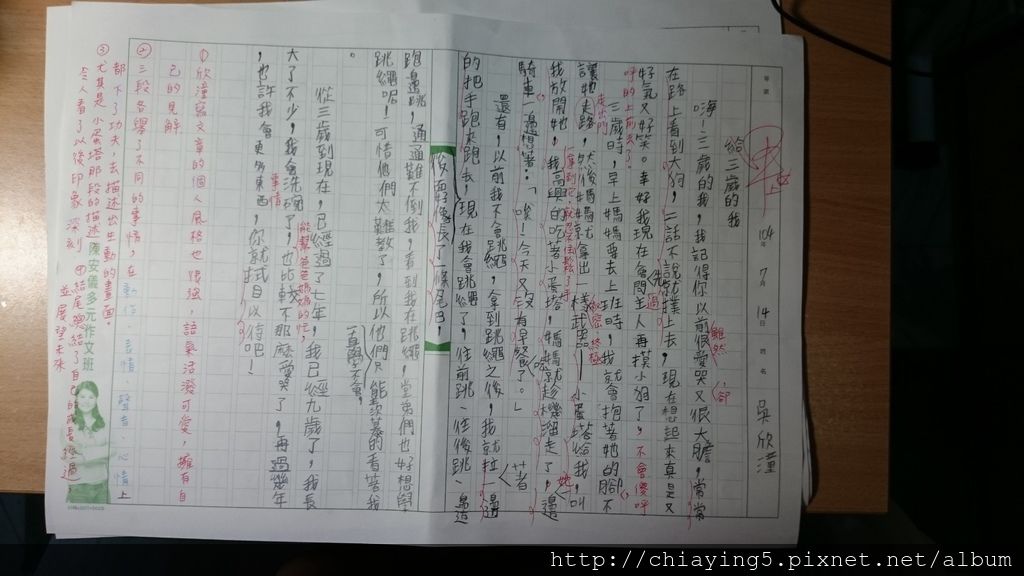 104年7月14日 姓名 吳欣潼
給三歲的我
嗨!三歲的我,我記得你以前很愛哭又很大膽,常常
在路上看到大狗,二話不說就撲上去,現在想起來真是又
好氣又好笑。幸好我現在會問主人再摸小狗了,不會傻呼
呼的上前去了。
三歲時,早上媽媽要去上班時,我就會抱著她的腳不
讓她走路,然後媽媽就拿出一樣武器——小蛋塔給我,叫
我放開她,我高興的吃著小蛋塔,媽媽就趁機溜走了,邊
騎車一邊想著:「唉!今天又沒有早餐了。」
還有,以前我不會跳繩,拿到跳繩之後,我就拉著
的把手跑來跑去,現在我會跳繩了,往前跳、往後跳、邊
後面好像長了一條尾巴,
跑邊跳,通通難不倒我,看到我在跳繩,堂弟們也好想學
跳繩呢!可惜他們太難教了,所以他們只能羨慕的看著我
。
從三歲到現在,已經過了七年,我已經九歲了,我長
大了不少,我會洗碗了,也比較不那麼愛哭了,再過幾年
,也許我會更多東西,你就拭目以待吧!
①欣潼寫文章的個人風格也很強,語氣活潑可愛,擁有自
己的見解
②三段各舉了不同的事情,在動作、表情、聲音、心情上
都下了功夫,去描述出生動的畫面。
③尤其是小蛋塔那段的描述
令人看了以後印象深刻 ④結尾總結了自己的成長過
並展望未來
陳安儀多元作文班
http://chiaying5.pixnet.net/album